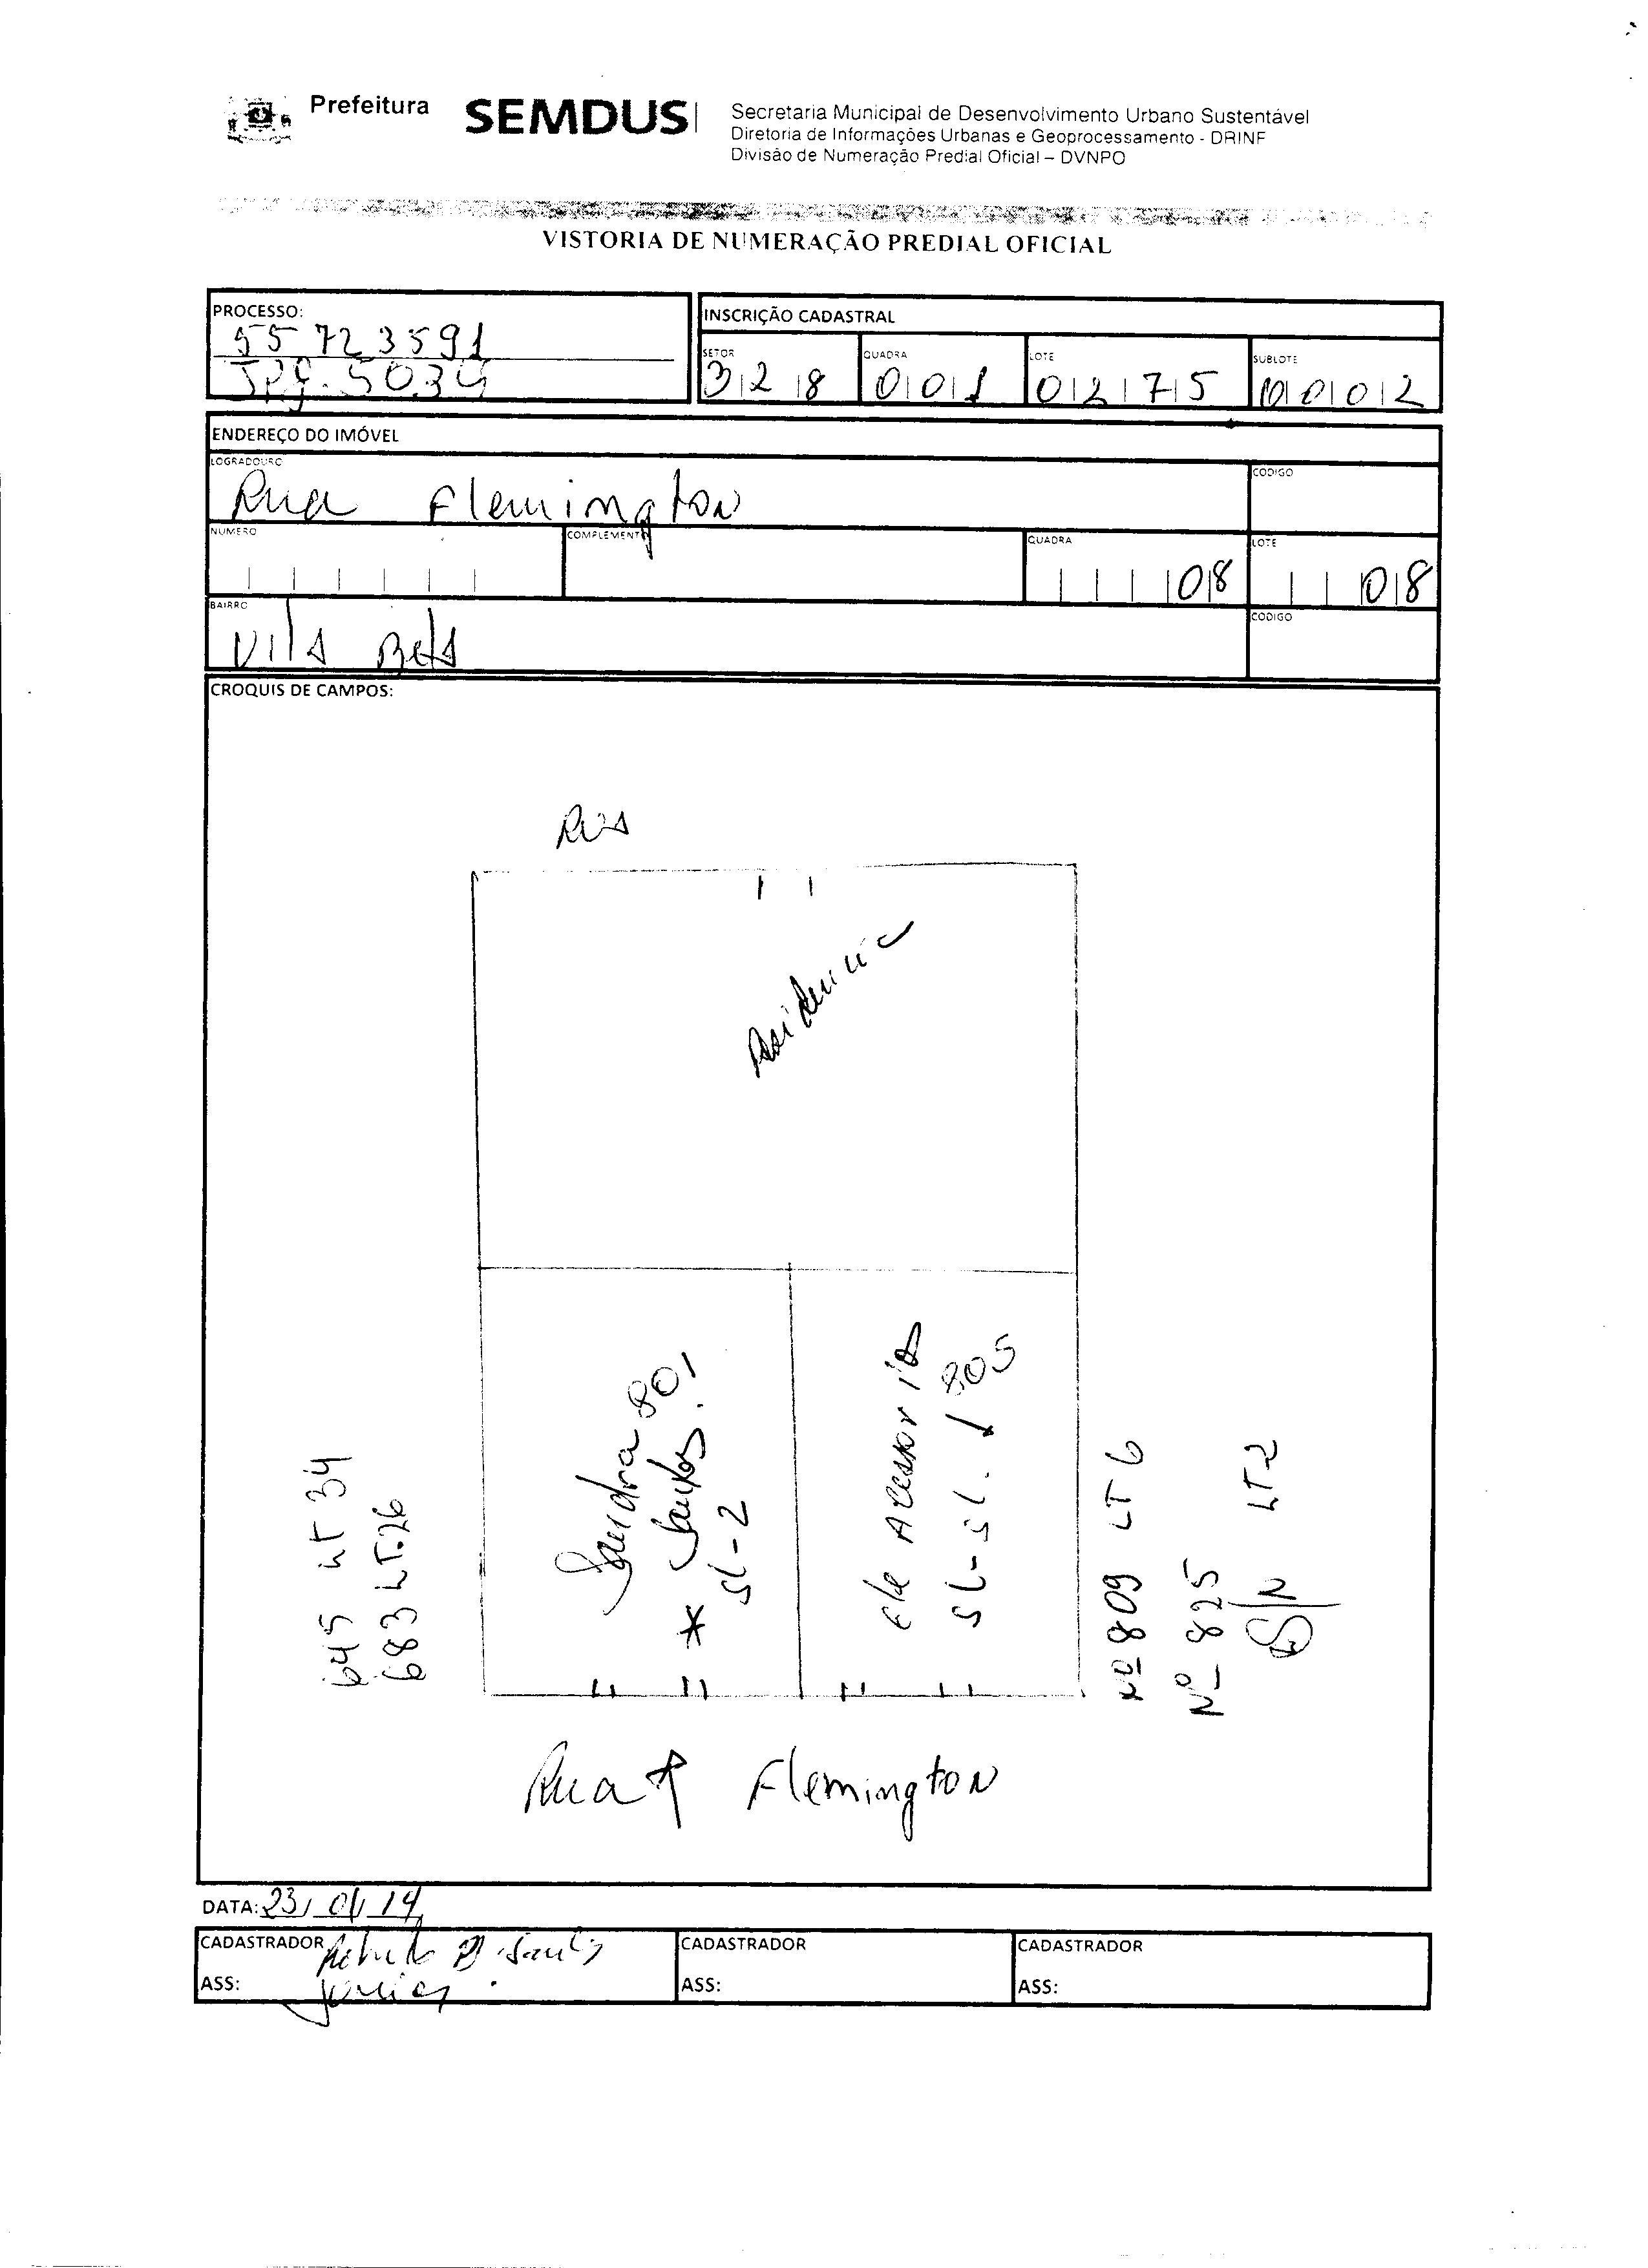 Prefeitura SEMDUS
Secretaria Municipal de Desenvolvimento Urbano Sustentável
Diretoria de Informações Urbanas e Geoprocessamento - DRINF
Divisão de Numeração Predial Oficial – DVNPO
VISTORIA DE NUMERAÇÃO PREDIAL OFICIAL
PROCESSO:
55723591
5034
INSCRIÇÃO CADASTRAL
SETOR QUADRA LOTE SUBLOTE
328 001 0275 0002
ENDEREÇO DO IMÓVEL
LOGRADOURO CODIGO
Rua Flemington
NUMERO COMPLEMENTO QUADRA LOTE
08 08
BAIRRO CODIGO
Vila Bela
CROQUIS DE CAMPOS:
Rua
Residencia
645 LT 34
683 LT.26
Sandra 801
* Santos.
SL-2
Ele Acessorios
SL-SL. 1 805
Nº 809 LT 6
Nº 825
S/N LT2
Rua Flemington
DATA: 23/01/14
CADASTRADOR CADASTRADOR CADASTRADOR
Junior
ASS: ASS: ASS: